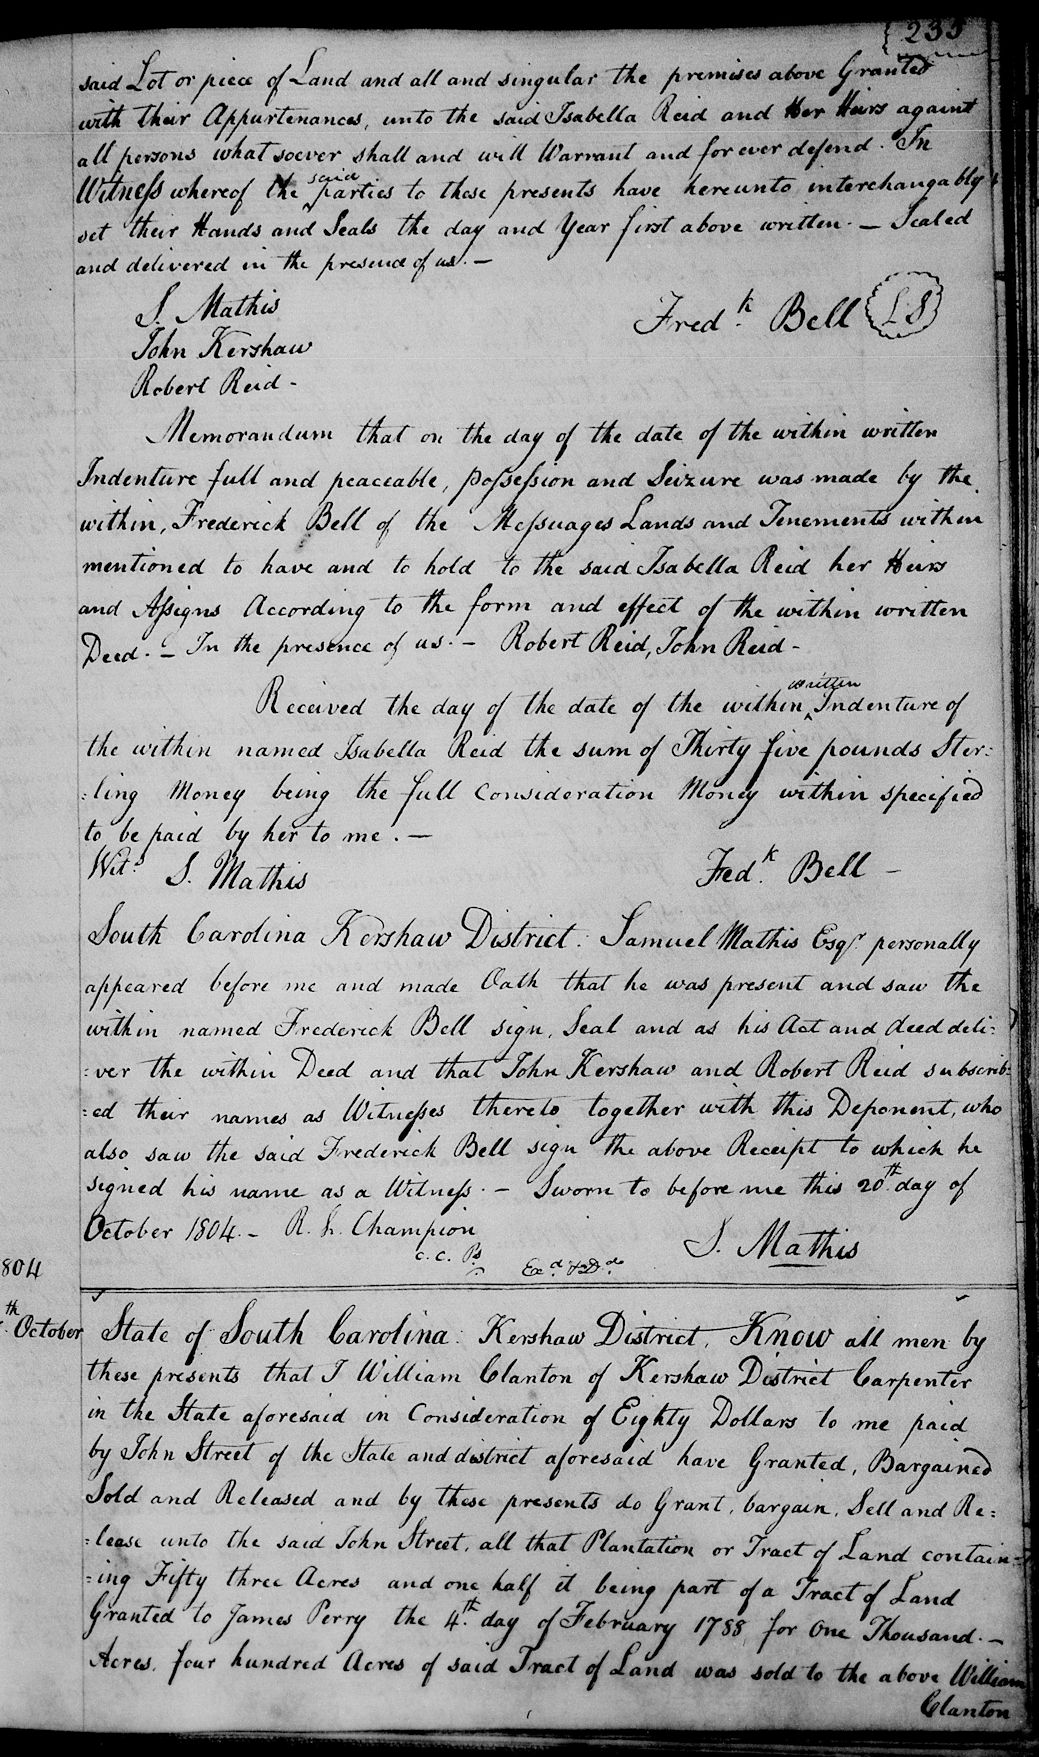 235
said Lot or piece of Land and all and singular the premises above Granted
with their Appurtenances, unto the said Isabella Reid and Her Heirs against
all persons whatsoever shall and will Warrant and forever defend. In
Witness whereof the said parties to these presents have hereunto interchangably
set their Hands and Seals the day and Year first above written. — Sealed
and delivered in the presence of us. —
S. Mathis
John Kershaw
Robert Reid -
Fred.k Bell L.S
Memorandum that on the day of the date of the within written
Indenture full and peaceable, possession and Seizure was made by the
within, Frederick Bell of the Messuages Lands and Tenements within
mentioned to have and to hold to the said Isabella Reid her Heirs
and Assigns According to the form and effect of the within written
Deed. — In the presence of us. — Robert Reid, John Reid -
Received the day of the date of the within written Indenture of
the within named Isabella Reid the sum of Thirty five pounds Ster=
=ling Money being the full Consideration Money within specified
to be paid by her to me. —
Wit.s S. Mathis Fed.k Bell —
South Carolina Kershaw District. Samuel Mathis Esq.r personally
appeared before me and made Oath that he was present and saw the
within named Frederick Bell sign, Seal and as his Act and deed deli=
=ver the within Deed and that John Kershaw and Robert Reid subscrib=
=ed their names as Witnesses thereto together with this Deponent, who
also saw the said Frederick Bell sign the above Receipt to which he
signed his name as a Witness. — Sworn to before me this 20.th day of
October 1804. — R. L. Champion
S. Mathis
C. C. Ps
Ex.d & D.d
804
th October
State of South Carolina: Kershaw District, Know all men by
these presents that I William Clanton of Kershaw District Carpenter
in the State aforesaid in Consideration of Eighty Dollars to me paid
by John Street of the State and district aforesaid have Granted, Bargained
Sold and Released and by these presents do Grant, bargain, Sell and Re=
=lease unto the said John Street, all that Plantation or Tract of Land contain=
=ing Fifty three Acres and one half it being part of a Tract of Land
Granted to James Perry the 4.th day of February 1788 for One Thousand. —
Acres, four hundred Acres of said Tract of Land was sold to the above William
Clanton